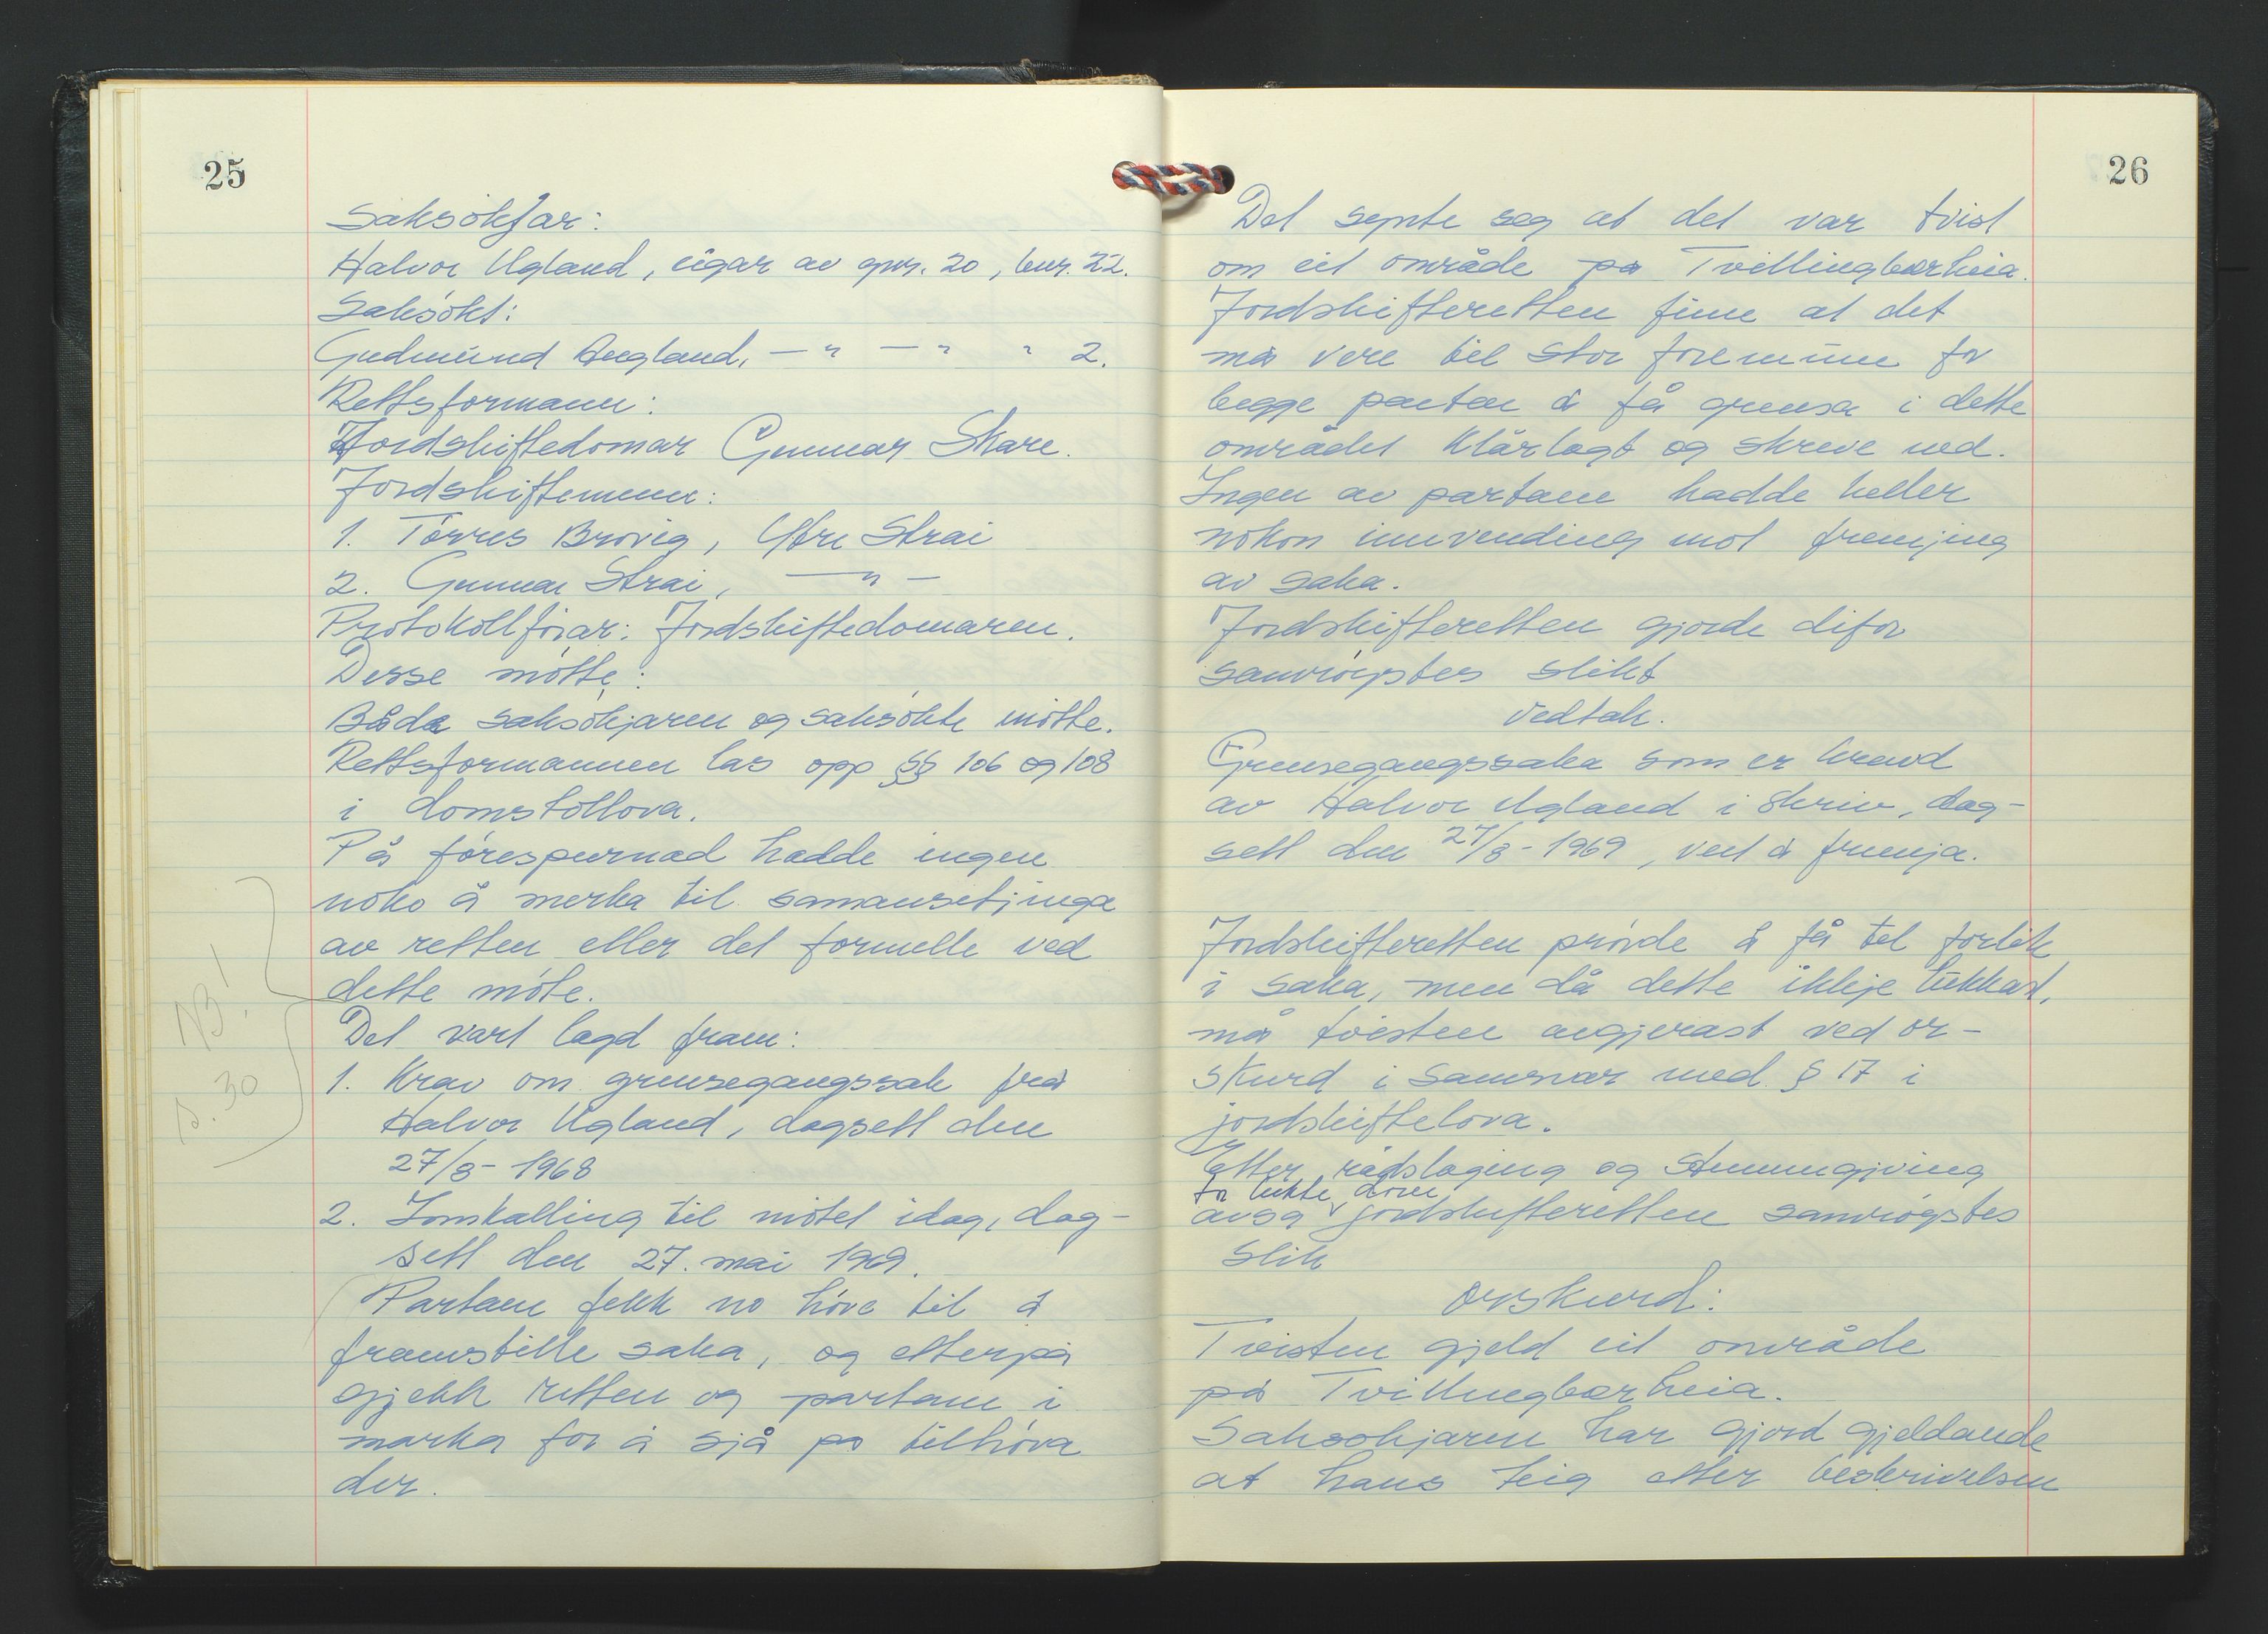 25
Saksökjar:
Halvor Ugland, eigar av gnr. 20, bnr. 22.
Saksökt:
Gudmund Augland, — " — " " 2.
Rettsformann:
Jordskiftedomar Gunnar Skare.
Jordskiftemenn:
1. Tørres Brovig, Øfre Strai
2. Gunnar Strai, — " —
Protokollførar: Jordskiftedomaren.
Desse møtte:
Både saksökjaren og saksökte møtte.
Rettsformannen las opp §§ 106 og 108
i domstollova.
På førespurnad hadde ingen
noko å merka til samansetjinga
av retten eller det formelle ved
dette møte.
Det vart lagd fram:
1. Krav om grensegangssak frå
Halvor Ugland, dagsett den
27/8-1968
2. Innkalling til møtet idag, dag-
sett den 27. mai 1969.
Partane fekk no høve til å
framstille saka, og etterpå
gjekk retten og partane i
marka for å sjå på tilhøva
der.
NB!
s. 30
26
Det synte seg at det var tvist
om eit område på Tvillingbærheia.
Jordskifteretten finn at det
må vere til stor foremunn for
begge partar å få grensa i dette
området klårlagt og skreve ned.
Ingen av partane hadde heller
nokon innvending mot fremjing
av saka.
Jordskifteretten gjorde difor
samrøystes slikt
vedtak.
Grensegangssaka som er krevd
av Halvor Ugland i skriv, dag-
sett den 27/8-1969, vert å fremja.
Jordskifteretten prøvde å få til forlik
i saka, men då dette ikkje lukkast,
må tvisten avgjerast ved or-
skurd i samsvar med § 17 i
jordskiftelova.
Etter rådslaging og stemmegjeving
for lukte dører
avsa jordskifteretten samrøystes
slik
orskurd:
Tvisten gjeld eit område
på Tvillingbærheia.
Saksøkjaren har gjord gjeldande
at hans teig etter beskrivelsen